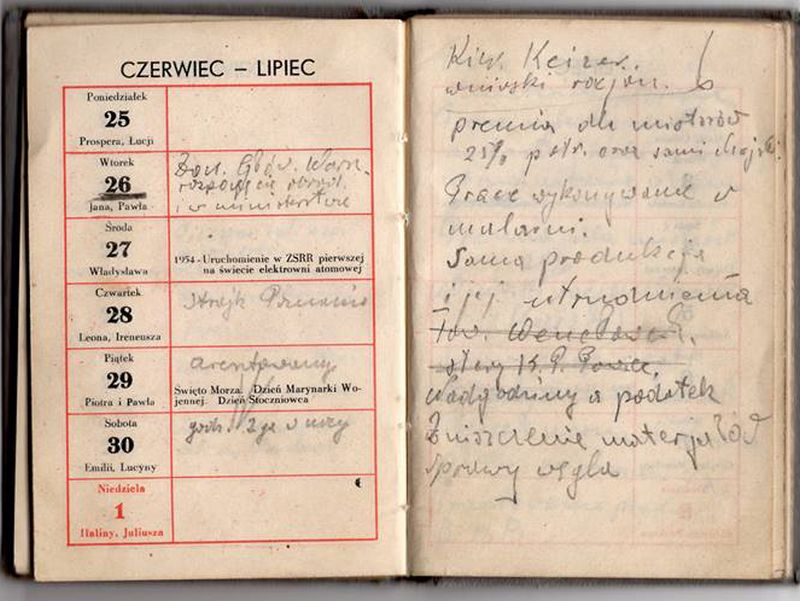 CZERWIEC – LIPIEC
Poniedziałek
25
Prospera, Łucji
Wtorek
26
Jana, Pawła
Głów. Warsz.
rozpoczęcie obrad.
i w ministerstwie
Środa
27
Władysława
1954 - Uruchomienie w ZSRR pierwszej
na świecie elektrowni atomowej
Czwartek
28
Leona, Ireneusza
Strajk Poznania
Piątek
29
Piotra i Pawła
aresztowany
Święto Morza. Dzień Marynarki Wo-
jennej. Dzień Stoczniowca
Sobota
30
Emilii, Lucyny
godz. 2ga w nocy
Niedziela
1
Haliny, Juliusza
wnioski racjon.
premia dla mistrzów
25% potr. oraz sami
Prace wykonywane w
malarni.
Sama produkcja
i jej utrudnienia
Tow.
stary K. P.
Nadgodziny a podatek
Zniszczenie materjałów
Sprawy węgla